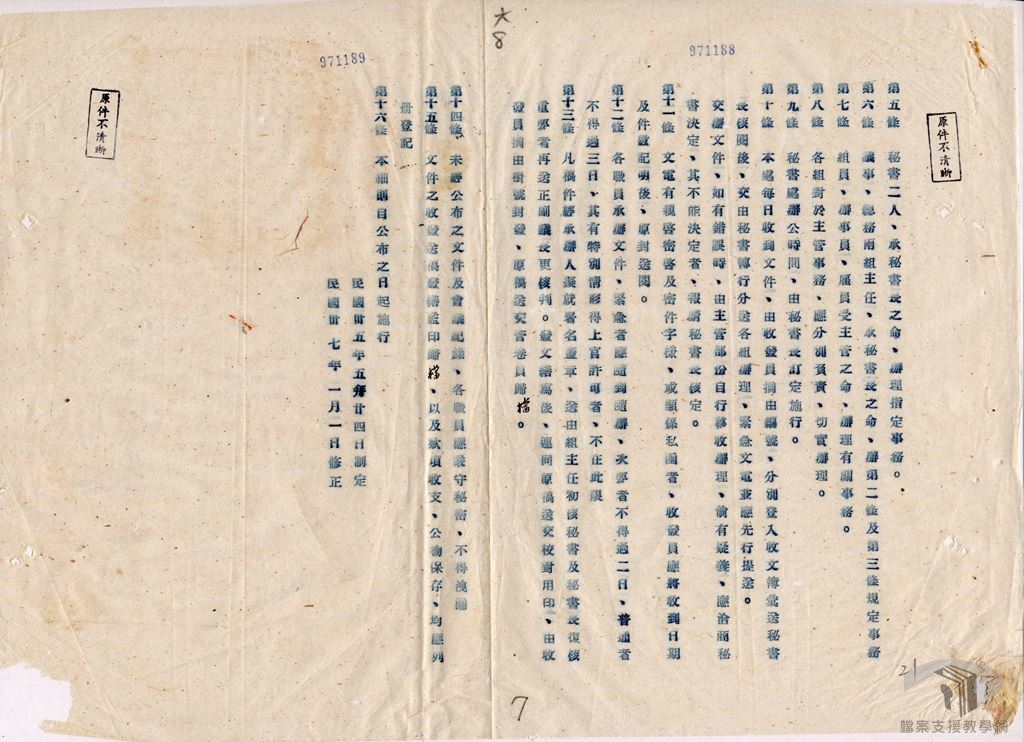 大
8
971188
原件不清晰
第五條　秘書二人、承秘書長之命、辦理指定事務。
第六條　議事、總務兩組主任、承秘書長之命、辦第二條及第三條規定事務
第七條　組員、辦事員、雇員受主管之命、辦理有關事務。
第八條　各組對於主管事務、應分別負責、切實辦理。
第九條　秘書處辦公時間、由秘書長訂定施行。
第十條　本處每日收到文件、由收發員摘由編號、分別登入收文簿彙送秘書
長核閱後、交由秘書轉行分送各組辦理、緊急文電並應先行提送。
交辦文件、如有錯誤時、由主管部份自行移收辦理、倘有疑義、應洽商秘
書決定、其不能決定者、報請秘書長核定。
第十一條　文電有親啓密啓及密件字樣、或顯係私函者、收發員應將收到日期
及件數記明後、原封送閱。
第十二條　各職員承辦文件、緊急者應隨到隨辦、次要者不得過二日、普通者
不得過三日、其有特別情形得上官許可者、不在此限
第十三條　凡稿件經承辦人擬就署名蓋章、送由組主任初核秘書及秘書長復核
重要者再送正副議長更核判。發文繕寫後、連同原稿送交校對用印、由收
發員摘由掛號封發、原稿送交管卷員歸檔。
7
21
971189
原件不清晰
第十四條　未經公布之文件及會議紀錄、各職員應嚴守秘密、不得洩漏
第十五條　文件之收發送稿發繕監印歸檔、以及款項收支、公物保存、均應列
冊登記
第十六條　本細則自公布之日起施行
民國卅五年五月廿四日制定
民國卅七年一月一日修正
檔案支援教學網